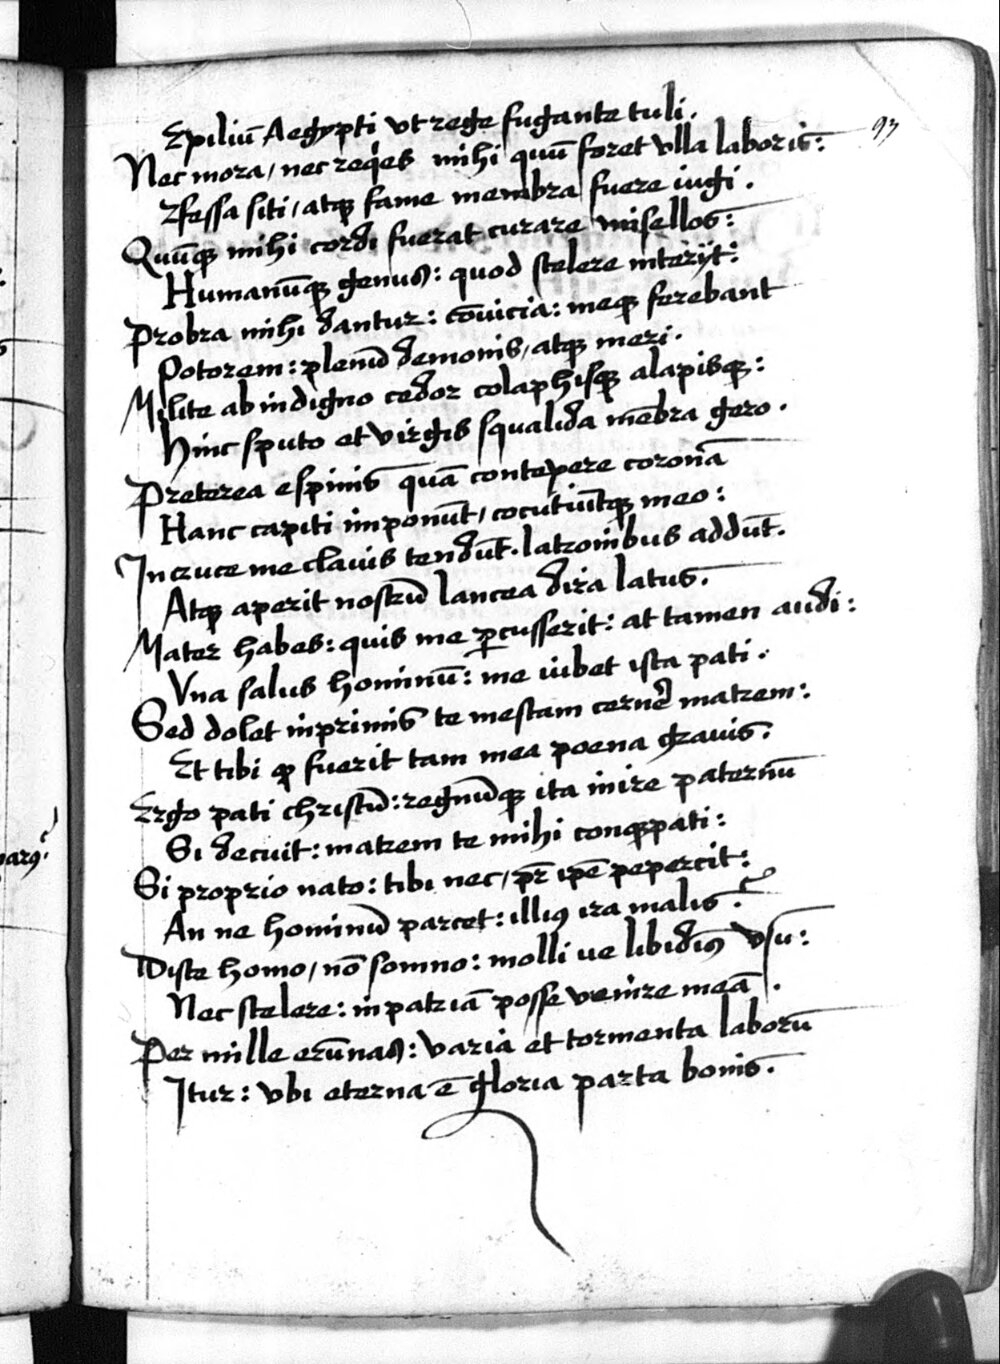 Epiliū Aegypti vt rege fugante tuli.
93
Nec mora, nec reqes mihi quū foret vlla laboris:
Efessa siti, atq fame membra fuere iugi.
Quūq mihi cordi fuerat curare misellos:
Humanūq genus: quod scelere interijt:
Probra mihi dantur: cōuicia: meq ferebant
Potorem: plenū demonis, atq meri.
Milite ab indigno cedor colaphisq alapisq:
Hinc sputo et virgis squalida mēbra gero.
Preterea espinis quā contepere coronā
Hanc capiti imponūt, cocutiūtq meo:
In cruce me clauis tendūt. latronibus addūt.
Atq aperit nostrū lancea dira latus.
Mater habes: quis me pcusserit: at tamen audi:
Vna salus hominū: me iubet ista pati.
Sed dolet inprimis te mestam cernē matrem:
Et tibi q fuerit tam mea poena grauis:
Ergo pati christū: regnūq ita inire paternū
Si decuit: matrem te mihi conqpati:
Si proprio nato: tibi nec, pr̄ ipē pepercit:
An ne hominū parcet: illiꝰ ira malis:
Disce homo, nō somno: molli ue libidīs vsu:
Nec scelere: in patriā posse venire meā.
Per mille erūnas: varia et tormenta laborū
Itur: vbi eterna ē gloria parta bonis.